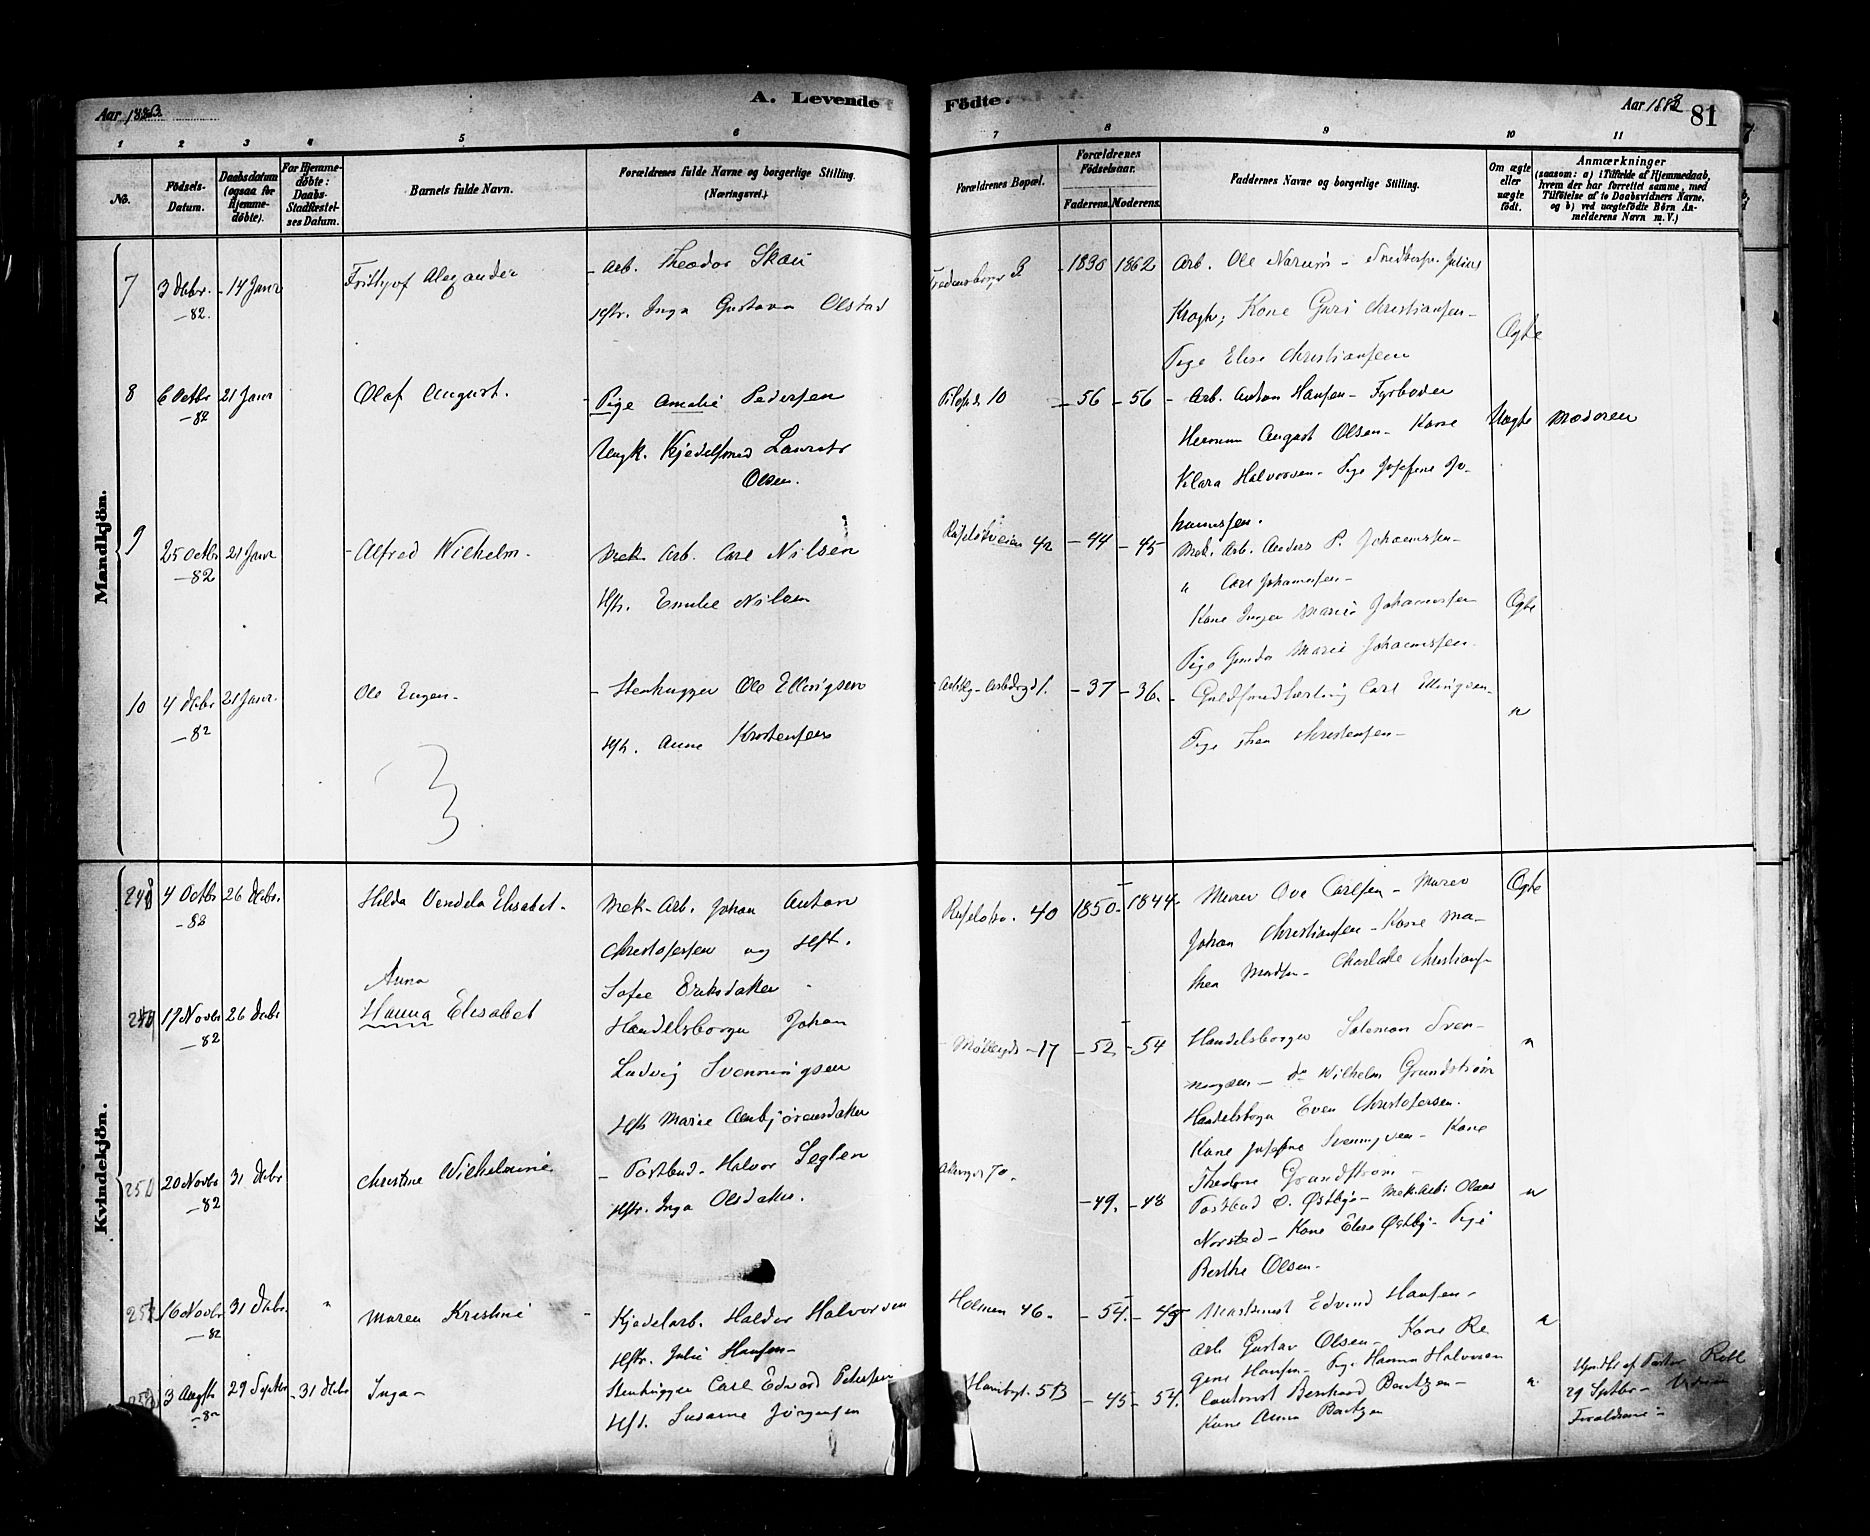 Aar 1883.
A. Levende
Födte.
Aar 1883
81
1 2 3 4 5 6 7 8 9 10 11
No.
Födsels-Datum.
Daabsdatum (ogsaa for Hjemme-döbte).
For Hjemme-döbte: Daabs Stadfæstel-ses Datum.
Barnets fulde Navn.
Forældrenes fulde Navne og borgerlige Stilling. (Næringsvei.)
Forældrenes Bopæl.
Forældrenes Födselsaar.
Faderens. Moderens.
Faddernes Navne og borgerlige Stilling.
Om ægte eller uægte födt.
Anmærkninger
(saasom: a) i Tilfælde af Hjemmedaab, hvem der har forrettet samme, med Tilföielse af to Daabsvidners Navne. og b) ved uægtefödte Börn An-melderens Navn m. V.)
Mandkjön.
7 3 Decbr. 14 Janr Frithjof Alexander - Arb. Theodor Skau 1830 1862 Arb. Ole Narum - Julius
-82. Hstr. Inga Gustava Olstad Krogh; Kone Guri Christiansen -
Pige Elise Christiansen Ægte
8 6 Octbr 21 Janr Olaf August. - Pige Amalie Pedersen Pilestr. 10 - 56 - 56 - Arb. Anton Hansen - Fyrbøder
-82 Ungk. Kjedelsmed Laurits Herman August Olsen - Kone Uægte Moderen
Olsen. Klara Halvorsen - Pige Josefine Jo-
hannessen.
9 25 Octbr 21 Janr - Alfred Wilhelm - Mek. Arb. Carl Nilsen 42 - 44 - 45 Mek. Arb. Anders P. Johannessen -
-82 Hstr. Emilie Nilsen " Carl Johannessen -
Kone Inger Marie Johannessen Ægte
Pige Gunda Marie Johannessen
10 4 Decbr 21 Janr. Ole Eugen - - Stenhugger Ole Ellingsen - 37 - 36. - Guldsmedlærling Carl Ellingsen -
-82 Hstr. Anne Kristensen Pige Thea Christensen - "
Kvindekjön.
4 Octbr 26 Decbr. Hilda Vendela Elisabet - Mek. Arb. Johan Anton 40 1850 - 1844. Murer Ove Carlsen - Murer Ægte
-82 Christofersen og Hst. Johan Christiansen - Kone Ma-
Sofie Eriksdatter thea Madsen - Charlotte Christians-
Anna
17 Novbr 26 Decbr Hanna Elisabet Handelsborger Johan - 17 - 52 - 54 Handelsborger Salomon Sven- "
-82 Ludvig Svenningsen ningsen - do Wilhelm Grundstrøm
Hstr Marie Aenbjörensdatter Handelsborger Even Christofersen.
Kone Josefine Svenningsen - Kone
251 20 Novbr 31 Decbr Christine Wilhelmine - Postbud - Halvor Seglen Grundstrøm -
-82 Hstr. Inga Olsdatter. - 49. - 48 Postbud O. Østbye - Mek. Arb. Olaus "
Norstad - Kone Elise Østby - Pige
Berthe Olsen -
16 Novbr 31 Decbr. " Maren Kristine - Kjedelarb. Haldor Halvorsen Holmen 46. - 54. - 49 Maskinist Edvind Hansen - "
-82 Hstr. Julie Hansen - Arb Gustav Olsen - Kone Re
gine Hansen - Pige Hanna Halvorsen
3 Augst 29 Septbr - 31 Decbr Inga - Stenhugger Carl Edward Petersen 5B - 45 - 54. Bernhard Bentzen - " Hjdbt. af Pastor
-82 Hst. Susanne Jørgensen Kone Anna Bentzen 29 Septbr -
Forældrene -